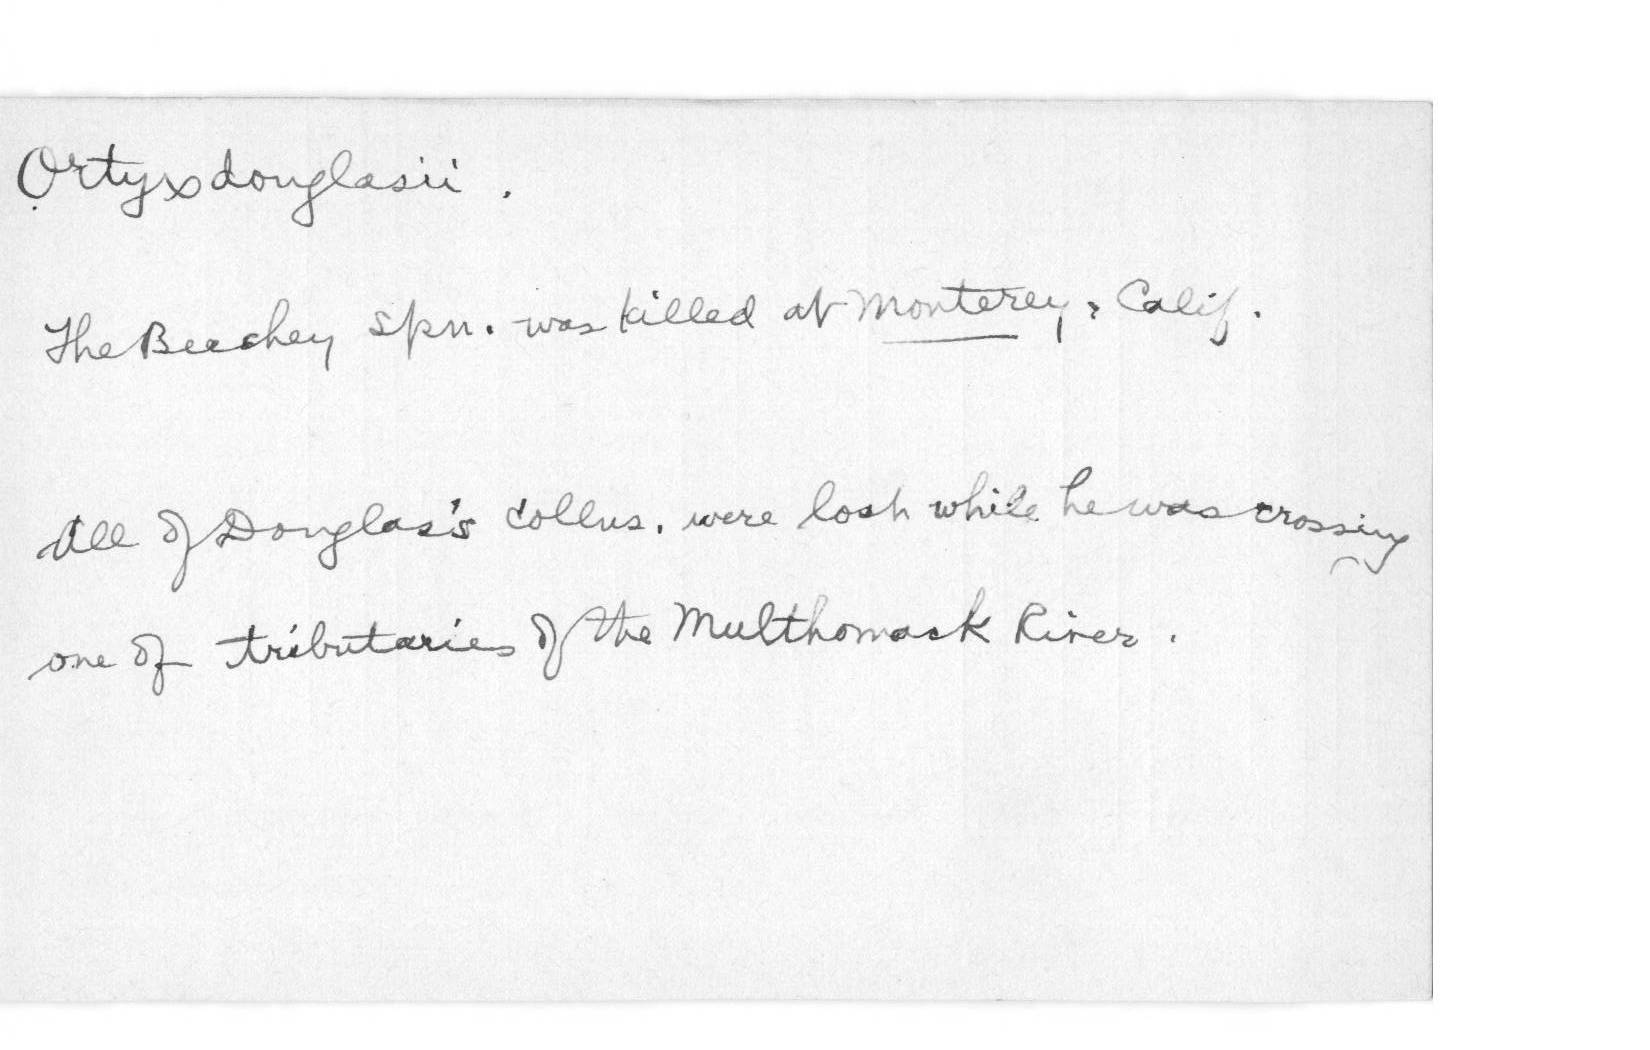 Ortyx douglasii.
The Beechey spn. was killed at Monterey, Calif.
All of Douglas's collns. were lost while he was crossing
one of tributaries of the Multhomack River.